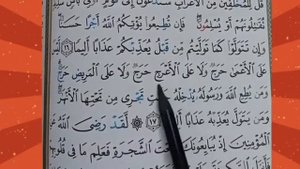 لِّلْمُخَلَّفِينَ مِنَ ٱلْأَعْرَابِ سَتُدْعَوْنَ إِلَىٰ قَوْمٍ أُو۟لِى بَأْسٍ
تُقَٰتِلُونَهُمْ أَوْ يُسْلِمُونَ ۖ فَإِن تُطِيعُوا۟ يُؤْتِكُمُ ٱللَّهُ أَجْرًا حَسَنًا
وَإِن تَتَوَلَّوْا۟ كَمَا تَوَلَّيْتُم مِّن قَبْلُ يُعَذِّبْكُمْ عَذَابًا أَلِيمًا ١٦
عَلَى ٱلْأَعْمَىٰ حَرَجٌ وَلَا عَلَى ٱلْأَعْرَجِ حَرَجٌ وَلَا عَلَى ٱلْمَرِيضِ حَرَجٌ
وَمَن يُطِعِ ٱللَّهَ وَرَسُولَهُۥ يُدْخِلْهُ تَجْرِى مِن تَحْتِهَا ٱلْأَ
وَمَن يَتَوَلَّ يُعَذِّبْهُ عَذَابًا أَلِيمًا ١٧ لَّقَدْ رَضِىَ ٱللَّهُ عَ
ٱلْمُؤْمِنِينَ إِذْ يُبَايِعُونَكَ تَحْتَ ٱلشَّجَرَةِ فَعَلِمَ مَا فِى قُلُو